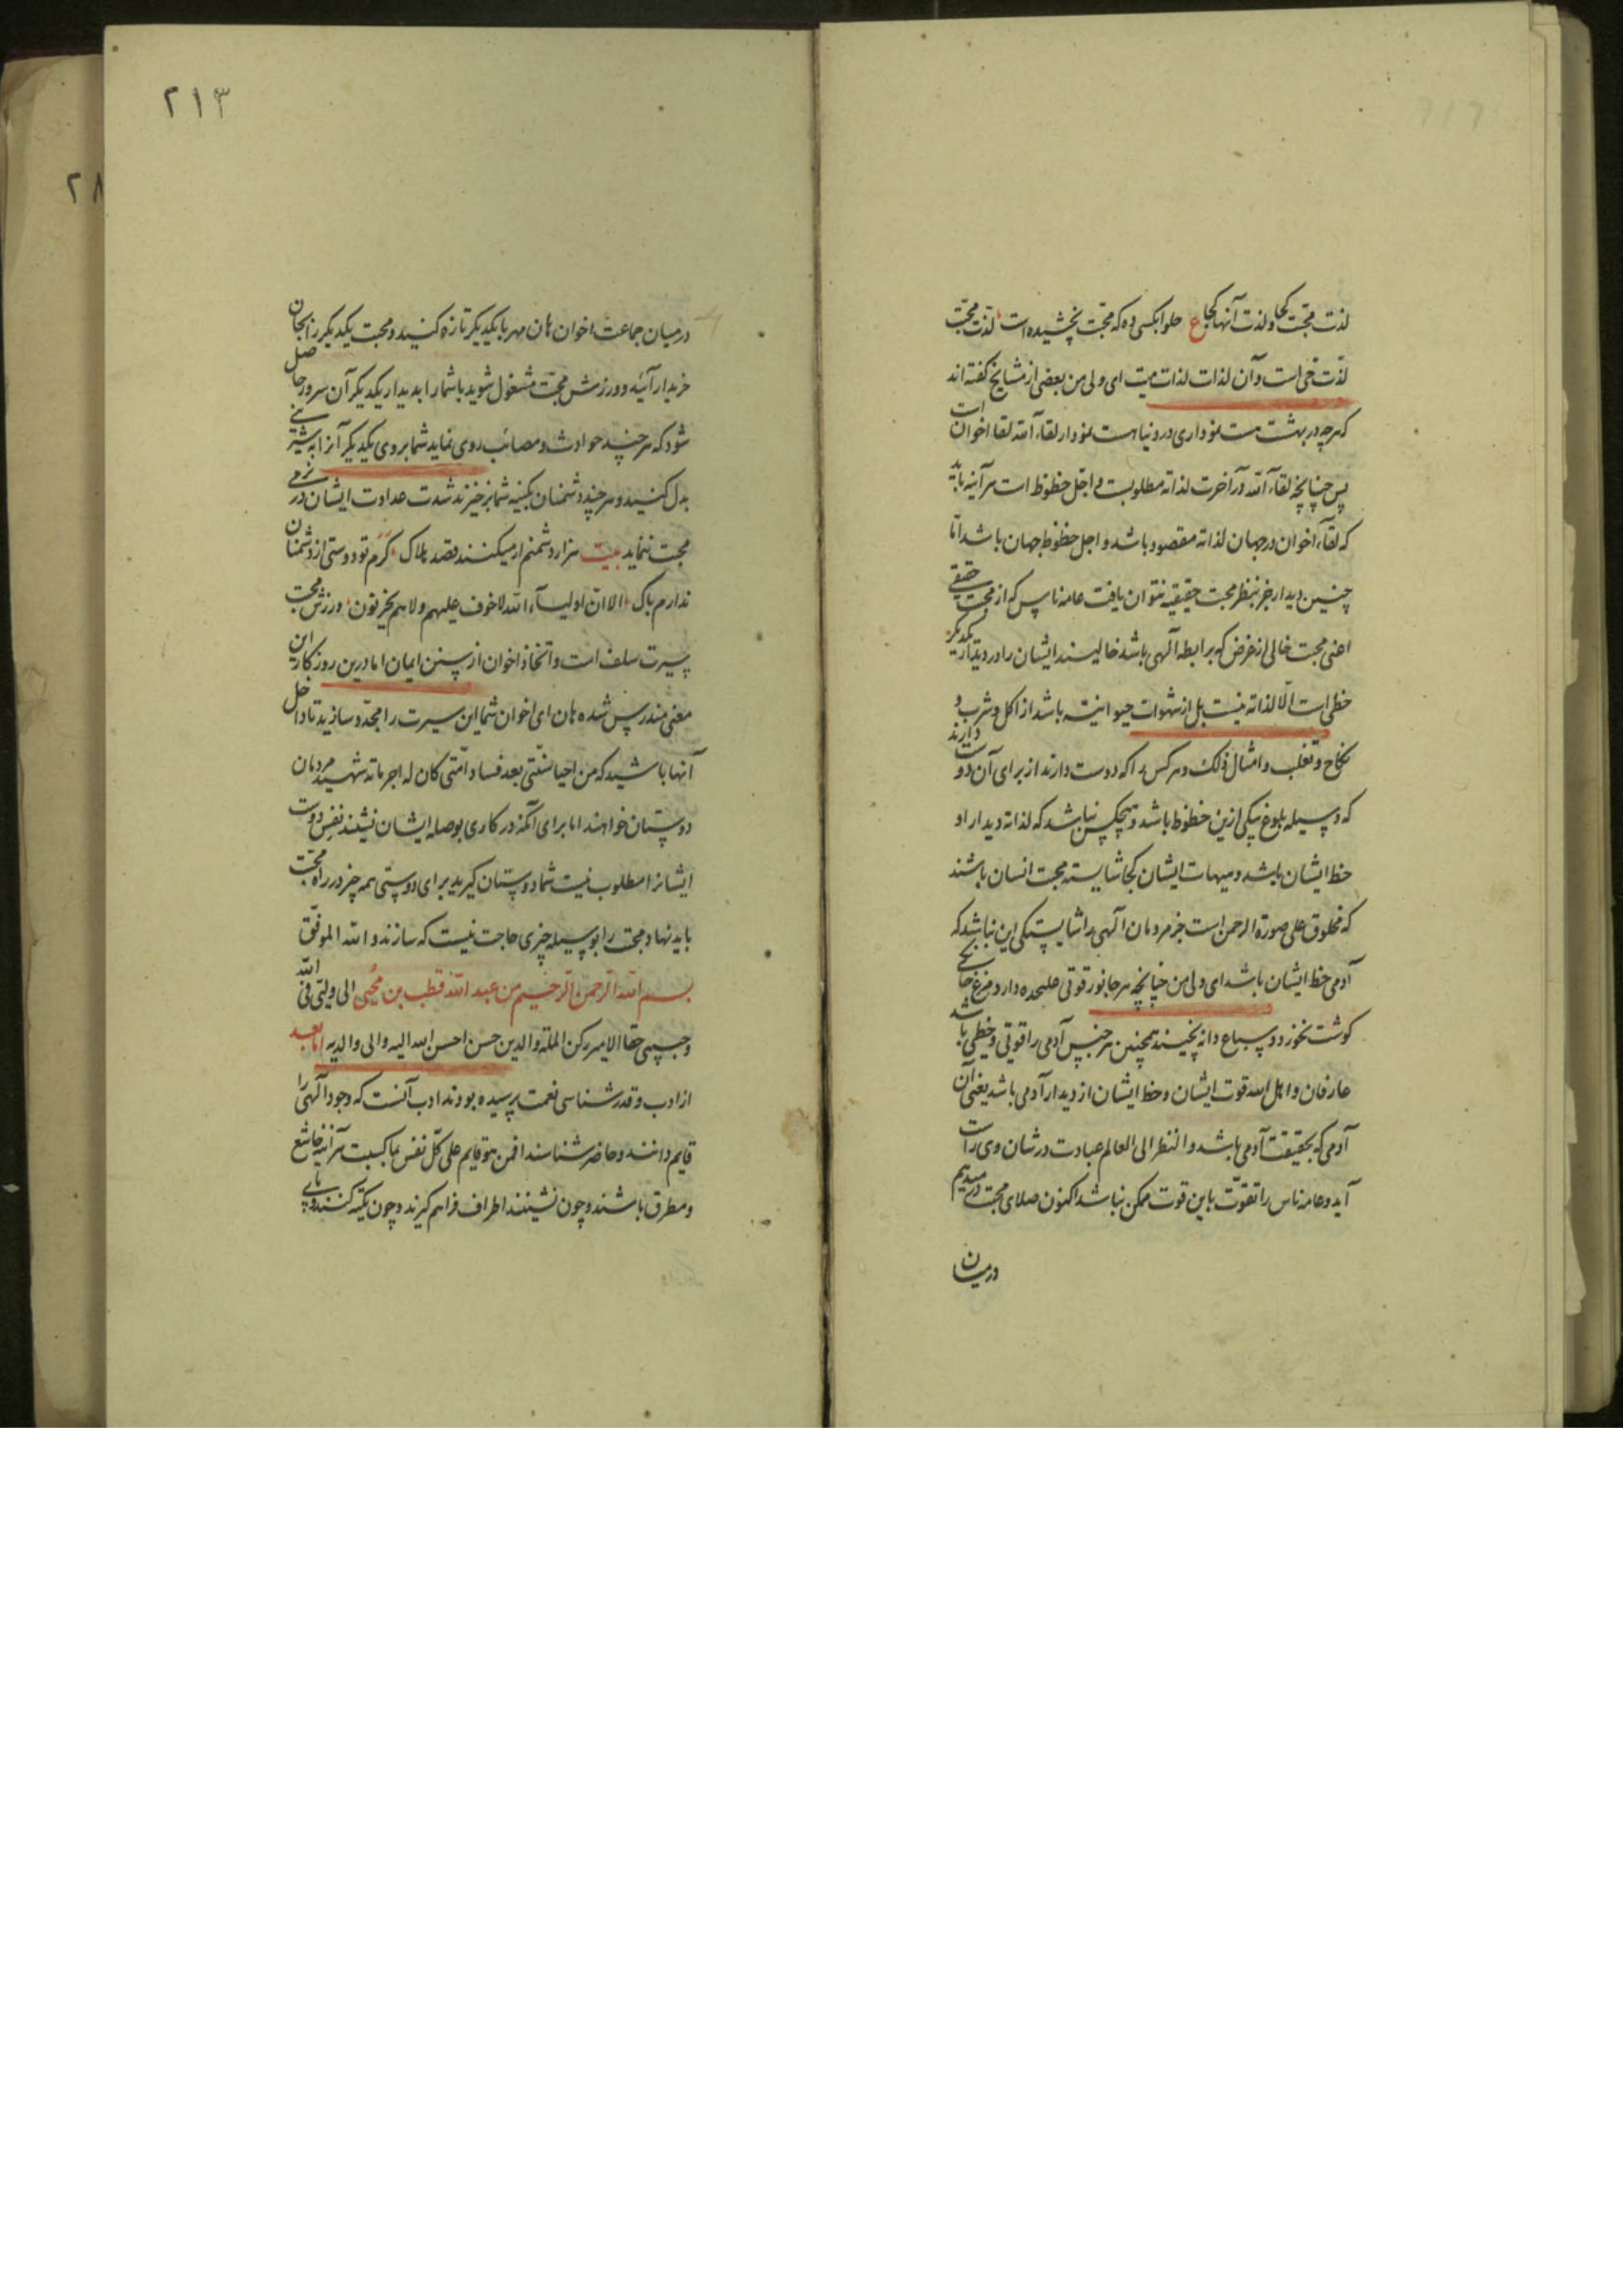 لذت محبّت کجا و لذت آنها کجا ع حلوا بکسی ده که محبّت نچشیده است لذّت محبّت
لذّت حی است و آن لذات لذات میت ای ولی من بعضی از مشایخ کفته اند
که هرچه در بهشت هست نموداری در دنیا هست نمودار لقاء الله لقا اخوان است
پس چنانچه لقاء الله در آخرت لذاته مطلوبست و اجلّ حظوظ است هرآینه باید
که لقاء اخوان در جهان لذاته مقصود باشد و اجل حظوظ جهان باشد امّا
چنین دیدار جز بنظر محبت حقیقیه نتوان یافت عامه ناس که از محبت حقیقی
اعنی محبت خالی از غرض که برابطه الهی باشد خالیند ایشان را در دیدار یکدیکر
حظی است الّا لذاته نیست بل از شهوات حیوانیّه باشد از اکل و شرب و
نکاح و تغلب و امثال ذلک و هر کس را که دوست دارند از برای آن دوست دارند
که وسیله بلوغ بیکی ازین حظوظ باشد و هیچکس نباشد که لذاته دیدار او
حظ ایشان باشد و هیهات ایشان کجا شایسته محبت انسان باشند
که مخلوق علی صورة الرحمن است جز مردمان الهی را شایستکی این نباشد که
آدمی حظ ایشان باشد ای ولی من چنانچه هر جانور قوتی علیحده دارد مرغ خانکی
کوشت نخورد و سباع دانه نچینند همچنین هر جنس آدمی را قوتی و حظی باشد
عارفان و اهل الله قوت ایشان و حظ ایشان از دیدار آدمی باشد یعنی آن
آدمی که بحقیقت آدمی باشد و النظر الی العالم عبادت در شان وی راست
آید و عامه ناس را تقوّت باین قوت ممکن نباشد اکنون صلای محبت در میدهیم
درمیان
۲۱۳
درمیان جماعت اخوان هان مهر با یکدیکر تازه کنید و محبت یکدیکر را بجان
خریدار آئید و ورزش محبّت مشغول شوید باشمارا بدیدار یکدیکر آن سرور حاصل
شود که هرچند حوادث و مصائب روی نماید شما بروی یکدیکر آنرا به
بدل کنید و هرچند دشمنان بکینه شما برخیزند شدت عداوت ایشان در نرمی
محبت ننماید بیت هزار دشمنم ار میکنند قصد هلاک کَرَم تو دوستی از دشمنان
ندارم باک الا انّ اولیاء الله لا خوف علیهم و لا هم یحزنون ورزش محبت
سیرت سلف است و اتخاذ اخوان از سنن ایمان اما درین روزکار این
معنی مندرس شده هان ای اخوان شما این سیرت را مجدّد سازید تا داخل
آنها باشید که من احیا سنّتی بعد فساد امّتی کان له اجر مائه شهید مردمان
دوستان خواهند اما برای آنکه در کاری بوصله ایشان نشینند نفس دوست
ایشانرا مطلوب نیست شما دوستان کیرید برای دوستی همه چیز در راه محبّت
باید نهاد و محبت را بوسیله چیزی حاجت نیست که سازند و الله الموفّق
بسم الله الرحمن الرحیم من عبد الله قطب بن محیی الی ولیّی فی الله
و حبیبی حقا الامیر رکن الملة و الدین حسن احسن الله الیه و الی والدیه اما بعد
از ادب و قدرشناسی نعمت پرسیده بودند ادب آنست که وجود الهی را
قایم دانند و حاضر شناسند افمن هو قایم علی کلّ نفس بما کسبت هرآینه خاشع
و مطرق باشند و چون نشینند اطراف فراهم کیرند و چون تکیه کنند پای
۲۸